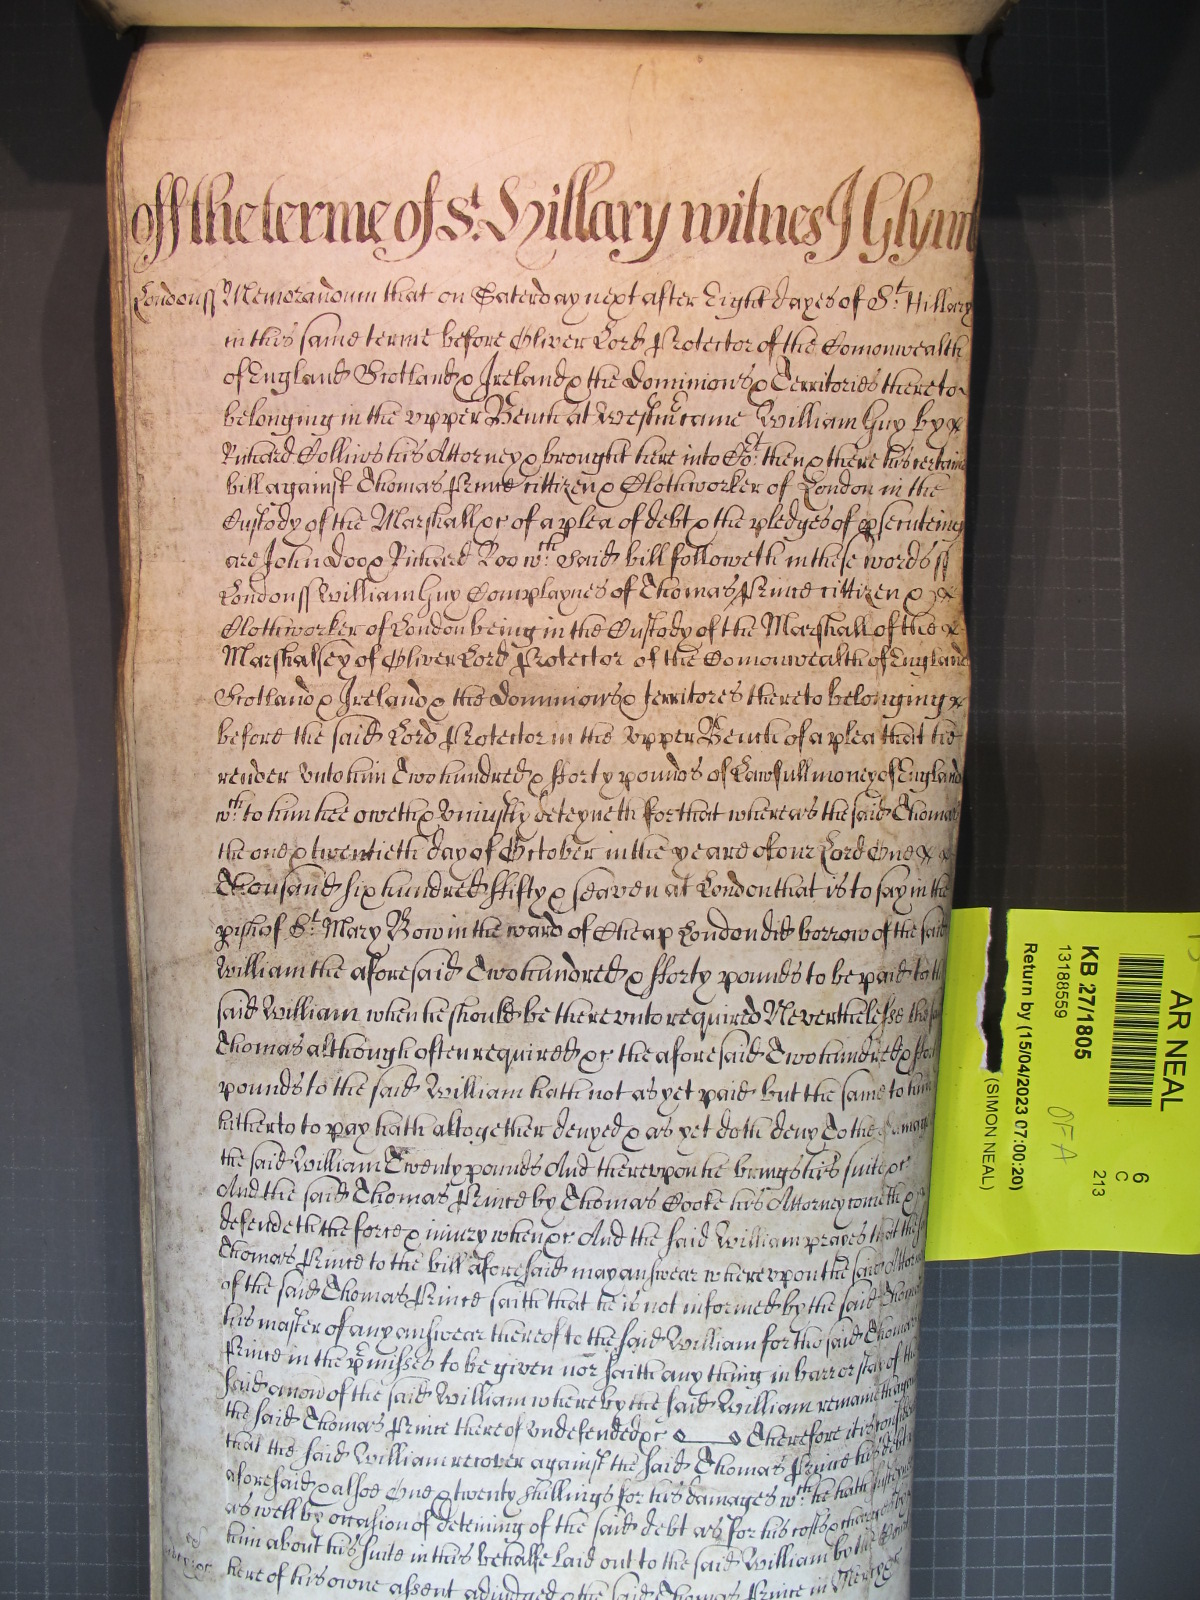 off the terme of St. Hillary witnes J Glynn
Londonss Memorandum that on Saterday next after Eight dayes of St. Hillary
in this same terme before Oliver Lord Protector of the Comonwealth
of England Scotland & Ireland & the Dominions & Territories thereto
belonging in the upper Bench at Westmr came William Guy by
Richard Collins his Attorney & brought here into Cot. then & there his certaine
bill against Thomas Prince cittizen & Clothworker of London in the
Custody of the Marshall &c of a plea of debt & the pledges of psecuteing
are John Doo & Richard Roo wth. said bill followeth in these words ss
Londonss William Guy Complaynes of Thomas Prince cittizen &
Clothworker of London being in the Custody of the Marshall of the
Marshalsey of Oliver Lord Protector of the Comonwealth of England
Scotland & Ireland & the dominions & territores thereto belonging
before the said Lord Protector in the Upper Bench of a plea that he
render unto him Two hundred & fforty pounds of Lawfull money of England
wch. to him hee oweth & uniustly deteyneth for that whereas the said Thomas
the one & twentieth day of October in the yeare of our Lord One
Thousand six hundred ffifty & seaven at London that is to say in the
pish of St. Mary Bow in the ward of Cheap London did borrow of the said
William the aforesaid Two hundred & fforty pounds to be paid to the
said William when he should be thereunto required Neverthelesse the said
Thomas although often required &c the aforesaid Two hundred & fforty
pounds to the said William hath not as yet paid but the same to him
hitherto to pay hath altogether denyed & as yet doth deny To the damage
the said William Twenty pounds And thereupon he brings his suite &c
And the said Thomas Prince by Thomas Cooke his Attorney cometh &
defendeth the force & iniury when &c And the said William prayes that the said
Thomas Prince to the bill aforesaid may answear whereupon the said Attorney
of the said Thomas Prince saith that he is not informed by the said Thomas
his master of any answear thereof to the said William for the said Thomas
Prince in the pmisses to be given nor saith any thing in barr or stay of the
said accon of the said William whereby the said William remaineth against
the said Thomas Prince thereof undefended &c Therefore it is considered
that the said William recover against the said Thomas Prince his debt
aforesaid & alsoe One & twenty shillings for his damages wch. he hath susteyned
as well by occasion of deteining of the said debt as for his costs & charges by
him about his suite in this behalfe laid out to the said William by the Court
here of his owne assent adiudged & the said Thomas Prince in Mercy &c
AR NEAL
KB 27/1805
13188559
Return by (15/04/2023 07:00:20)
(SIMON NEAL)
6
C
213
OFA